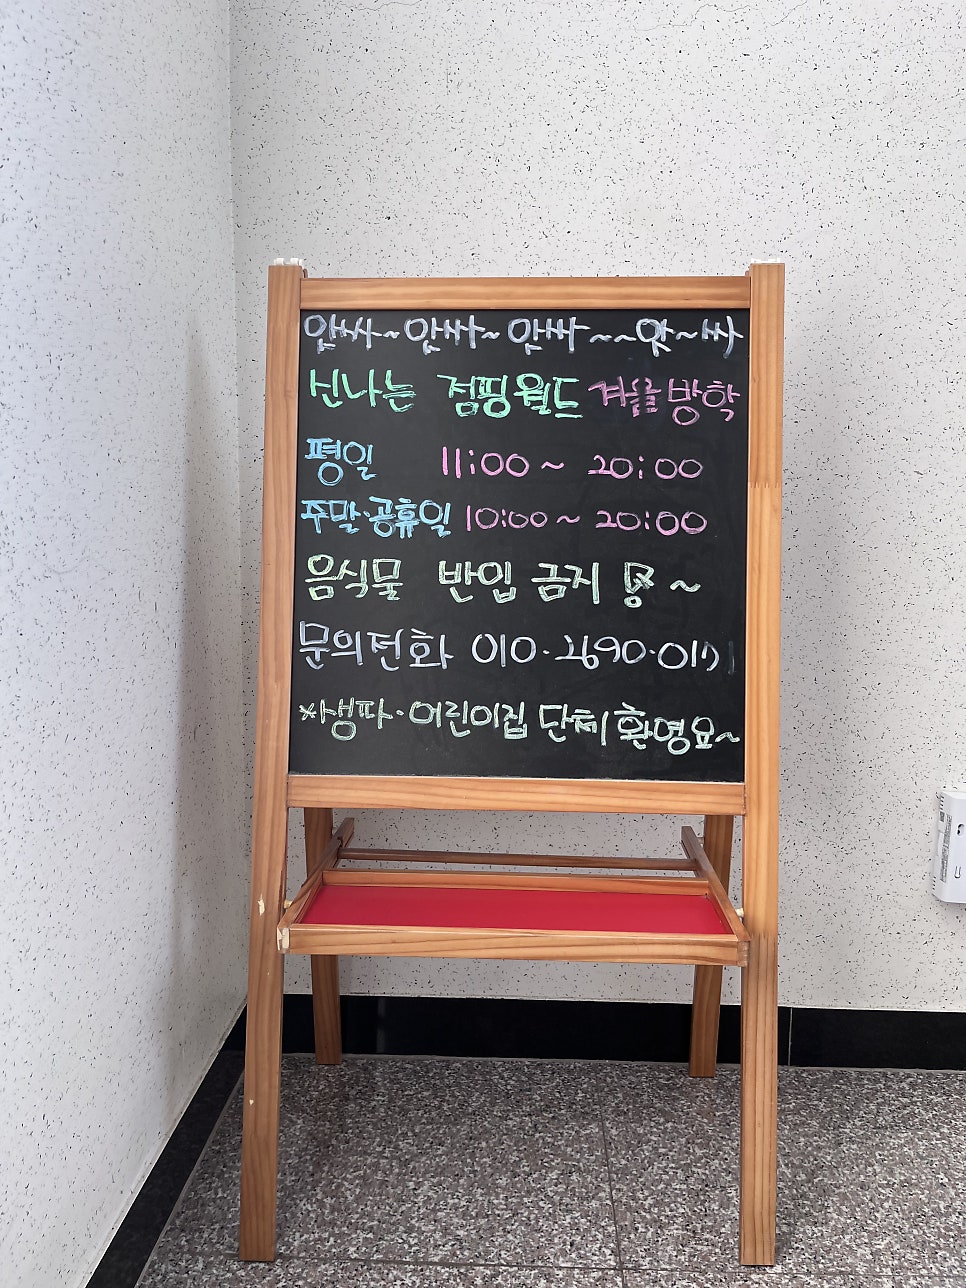 앗싸~앗싸~ 앗싸~~앗~싸
신나는 점핑월드 겨울방학
평일 11:00 ~ 20:00
주말·공휴일 10:00 ~ 20:00
음식물 반입 금지 ~
문의전화 010·2690·0171
*생파·어린이집 단체 환영요~